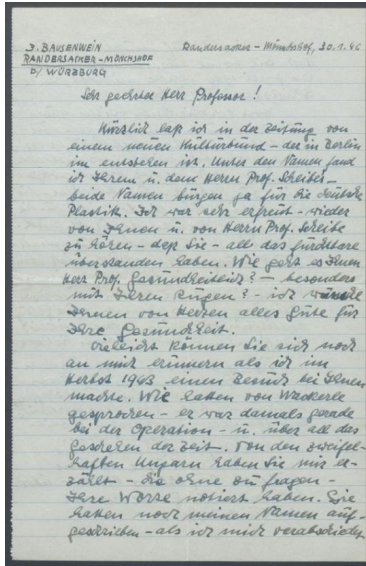 J. BAUSENWEIN
RANDERSACKER – MÖNCHSHOF
b/ WÜRZBURG
Randersacker – Mönchshof, 30.1.46
Sehr geehrter Herr Professor!
Kürzlich laß ich in der Zeitung von
einem neuen Kulturbund – der in Berlin
im entstehen ist. Unter den Namen fand
ich Ihren u. dem Herrn Prof. Scheibe –
beide Namen bürgen ja für die deutsche
Plastik. Ich war sehr erfreut – wieder
von Ihnen u. von Herrn Prof. Scheibe
zu hören – daß Sie – all das furchtbare
überstanden haben. Wie geht es Ihnen
Herr Prof. gesundheitlich? – besonders
mit Ihren Augen? – ich wünsche
Ihnen von Herzen alles Gute für
Ihre Gesundheit.
Vielleicht können Sie sich noch
an mich erinnern als ich im
Herbst 1943 einen Besuch bei Ihnen
machte. Wir hatten von Wackerle
gesprochen – er war damals gerade
bei der Operation – u. über all das
Geschehen der Zeit. Von den zweifel-
haften Ungarn haben Sie mir er-
zählt – die ohne zu fragen –
Ihre Worte notiert haben. Sie
hatten noch meinen Namen auf-
geschrieben – als ich mich verabschiedete